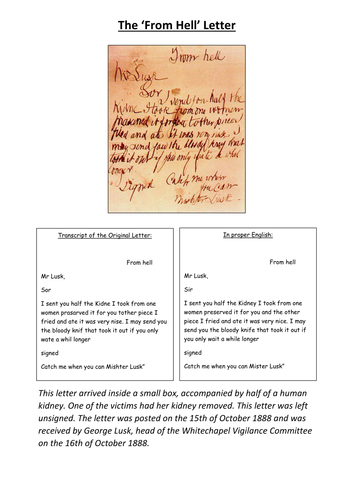 The ‘From Hell’ Letter
From hell
Mr Lusk
Sor
I send you half the
Kidne I took from one women
prasarved it for you tother piece I
fried and ate it was very nise. I
may send you the bloody knif that
took it out if you only wate a whil
longer
Signed
Catch me when
you Can
Mishter Lusk
Transcript of the Original Letter:
From hell
Mr Lusk,
Sor
I sent you half the Kidne I took from one
women prasarved it for you tother piece I
fried and ate it was very nise. I may send you
the bloody knif that took it out if you only
wate a whil longer
signed
Catch me when you can Mishter Lusk”
In proper English:
From hell
Mr Lusk,
Sir
I sent you half the Kidney I took from one
women preserved it for you and the other
piece I fried and ate it was very nice. I may
send you the bloody knife that took it out if
you only wait a while longer
signed
Catch me when you can Mister Lusk”
This letter arrived inside a small box, accompanied by half of a human
kidney. One of the victims had her kidney removed. This letter was left
unsigned. The letter was posted on the 15th of October 1888 and was
received by George Lusk, head of the Whitechapel Vigilance Committee
on the 16th of October 1888.